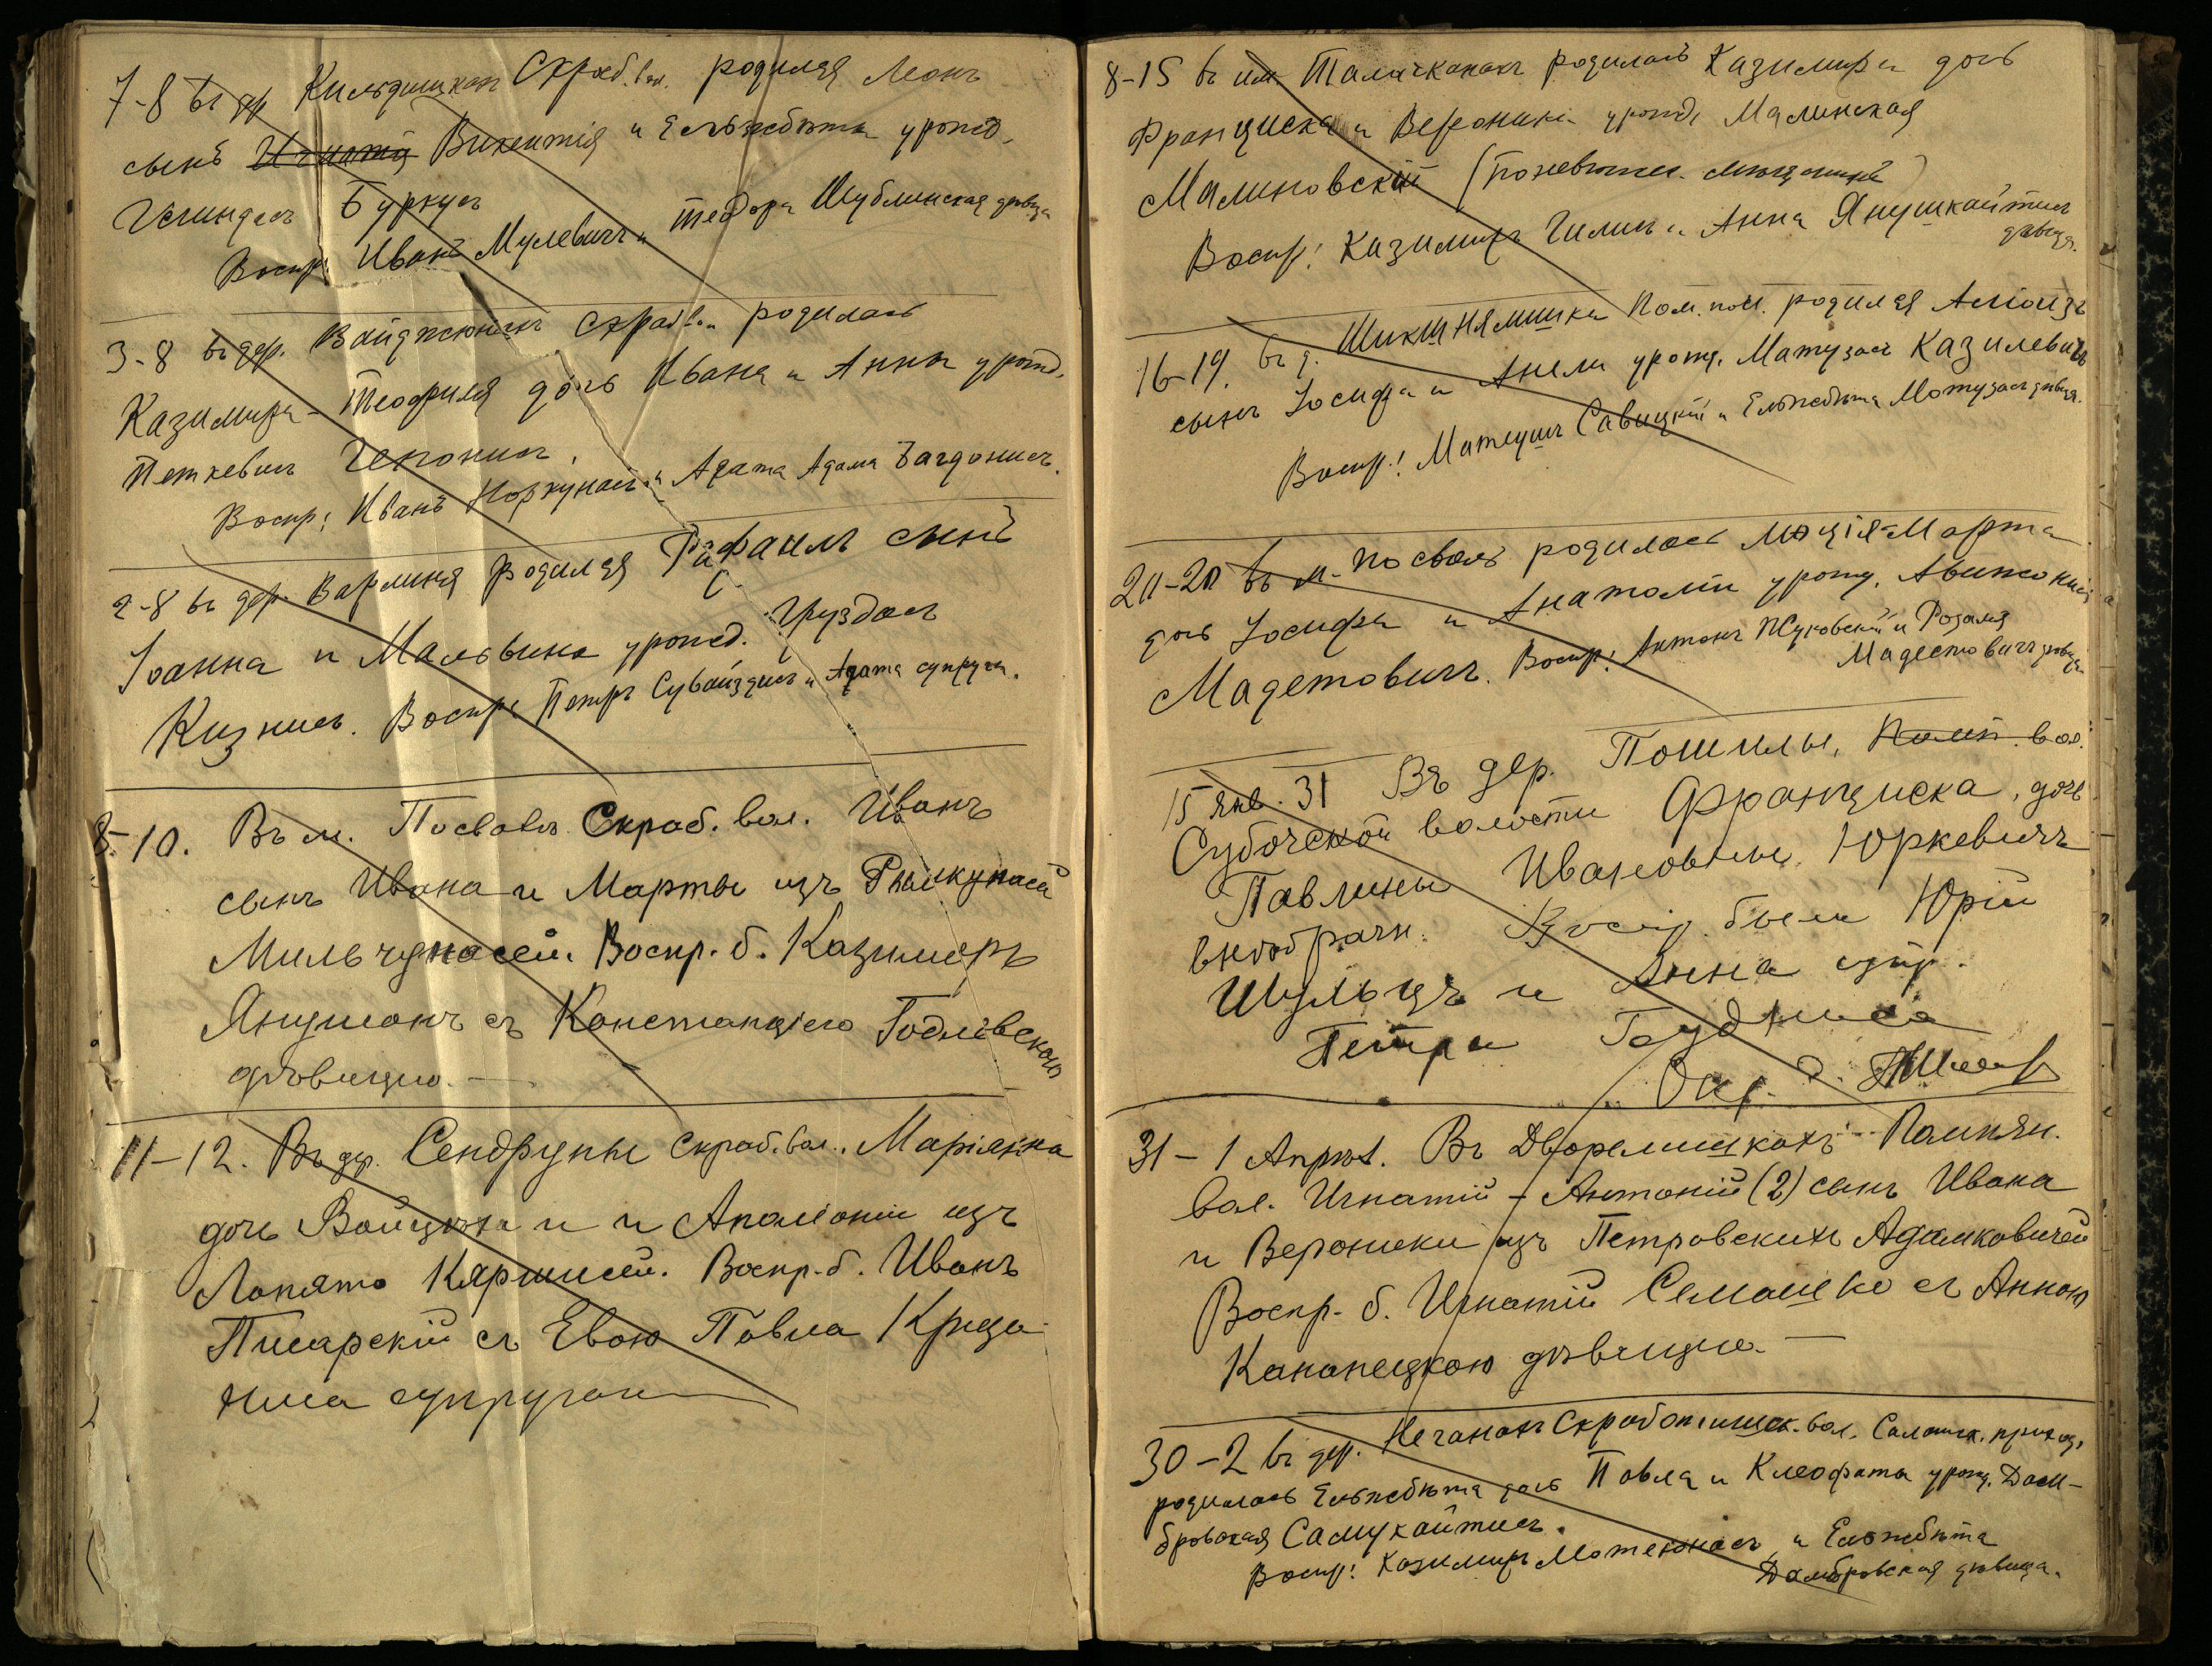 7-8 въ др Кильдишкахъ Скраб. вол. родился Леонъ
сынъ Игнатія Викентія и Ельжбѣты урожд.
Буркусъ
Воспр: Иванъ Мулевичъ и Теодора Шублинская дѣвица
3-8 въ дер. Вайджюнахъ Скраб. вол. родилась
Казимира-Теофиля дочь Ивана и Анны урожд.
Петкевичъ Чепонисъ.
Воспр: Иванъ Норкунасъ и Агата Адама Багдонисъ.
2-8 въ дер. Варлиня родился Рафаилъ сынъ
Іоанна и Мальвина урожд. Груздасъ
Кизнисъ. Воспр: Петръ Сувайздисъ и Агата супруги.
8-10. Въ м. Посволѣ Скраб. вол. Иванъ
сынъ Ивана и Марты изъ
Мильчунасей. Воспр. б. Казимеръ
Янушонъ съ Констанціею Годлевскою
дѣвицею. —
11-12. Въ др. Сендвруны Скраб. вол. Маріянна
дочь Войцѣха и и Аполіоніи изъ
Лопято Каршисей. Воспр. б. Иванъ
Писарскій съ Евою Павла Крища
ниса супругою
8-15 въ им. Талачконахъ родилась Казимира дочь
Франциска и Вероники урожд. Малинская
Малиновскій (Поневѣжск. мѣщанинъ)
Воспр: Казимиръ Чилисъ и Анна Янушкайтисъ
дѣвица.
16-19. въ д. Шикшнямишка Пом. пол. родился Алоизъ
сынъ Іосифа и Анели урожд. Матузасъ Казилевичъ
Воспр: Матеушъ Савицкій и Ельжбѣта Мотузасъ дѣвица.
20-20 въ м. Посволѣ родилась Люція-Марта
дочь Іосифа и Анатоліи урожд. Авижонисъ
Мадетовичъ. Воспр: Антонъ Жуковскій и Розалія
Мадестовичъ дѣвица
15 янв. 31 Въ дер. Пошилы, Помп. вол.
Субочской волости Франциска, дочь
Павлины Ивановны Юркевичъ
внѣбрачн. Воспр. были Юрій
Шульцъ и Анна супр.
Петра Гауджиса
31-1 Апрѣл. Въ Дворелишкахъ Помпян.
вол. Игнатій-Антоній (2) сынъ Ивана
и Вероники изъ Петровскихъ Адамковичей
Воспр. б. Игнатій Семашко съ Анною
Канапецкою дѣвицею. —
30-2 въ дер. Нечанахъ Скрабатишск. вол. Салатск. приход.
родилась Ельжбѣта дочь Павла и Клеофата урожд. Дом-
бровская Самукайтисъ.
Воспр: Казимиръ Мотеюнасъ и Ельжбѣта
Домбровская дѣвица.